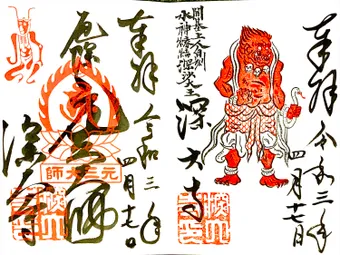 奉拝
令和三年
四月十七日
開基上人自刻
水神深沙大王
深大寺
奉拝
令和三年
四月十七日
元三大師
深大寺
元三大師